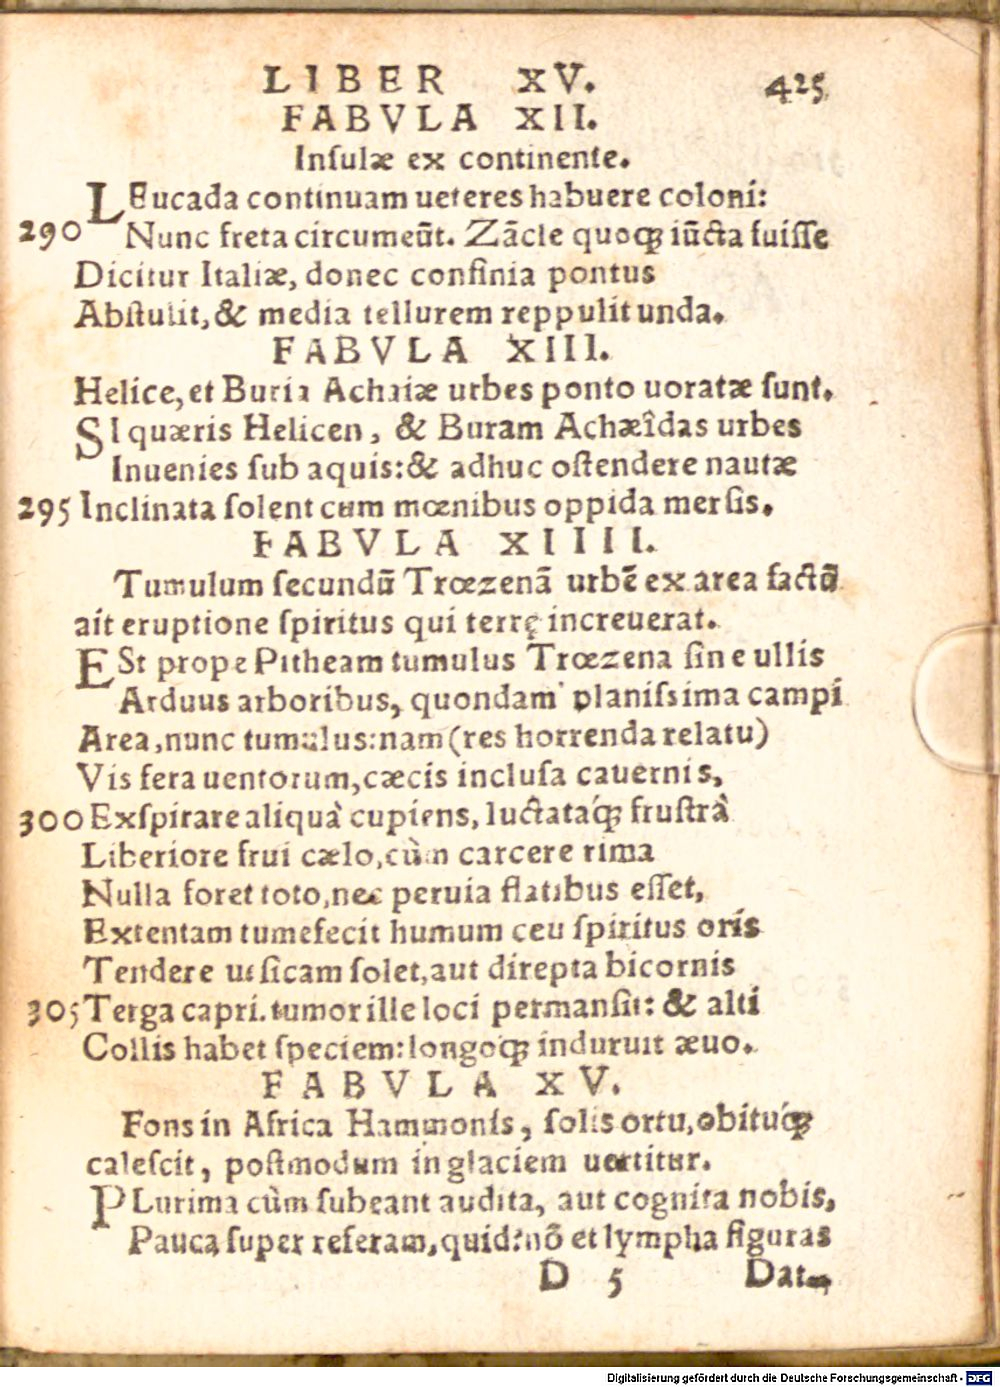 LIBER XV. 425
FABVLA XII.
Inſulæ ex continente.
LEucada continuam ueteres habuere coloni:
290 Nunc freta circumeũt. Zãcle quoqꝫ iũcta fuiſſe
Dicitur Italiæ, donec confinia pontus
Abſtulit, & media tellurem reppulit unda.
FABVLA XIII.
Helice, et Buria Achaiæ urbes ponto uoratæ ſunt.
SI quæris Helicen, & Buram Achæîdas urbes
Inuenies ſub aquis: & adhuc oſtendere nautæ
295 Inclinata ſolent cum mœnibus oppida merſis.
FABVLA XIIII.
Tumulum ſecundũ Trœzenã urbẽ ex area factũ
ait eruptione ſpiritus qui terrę increuerat.
ESt prope Pitheam tumulus Trœzena ſine ullis
Arduus arboribus, quondam planiſsima campi
Area, nunc tumulus: nam (res horrenda relatu)
Vis fera uentorum, cæcis incluſa cauernis,
300 Exſpirare aliquà cupiens, luctatáqꝫ fruſtrà
Liberiore frui cælo, cùm carcere rima
Nulla foret toto, nec peruia flatibus eſſet,
Extentam tumefecit humum ceu ſpiritus oris
Tendere ueſicam ſolet, aut direpta bicornis
305 Terga capri. tumor ille loci permanſit: & alti
Collis habet ſpeciem: longoqꝫ induruit æuo.
FABVLA XV.
Fons in Africa Hammonis, ſolis ortu, obitúqꝫ
caleſcit, poſtmodum in glaciem uertitur.
PLurima cùm ſubeant audita, aut cognita nobis,
Pauca ſuper referam, quid? nõ et lympha figuras
D 5 Dat,
Digitalisierung gefördert durch die Deutsche Forschungsgemeinschaft - DFG